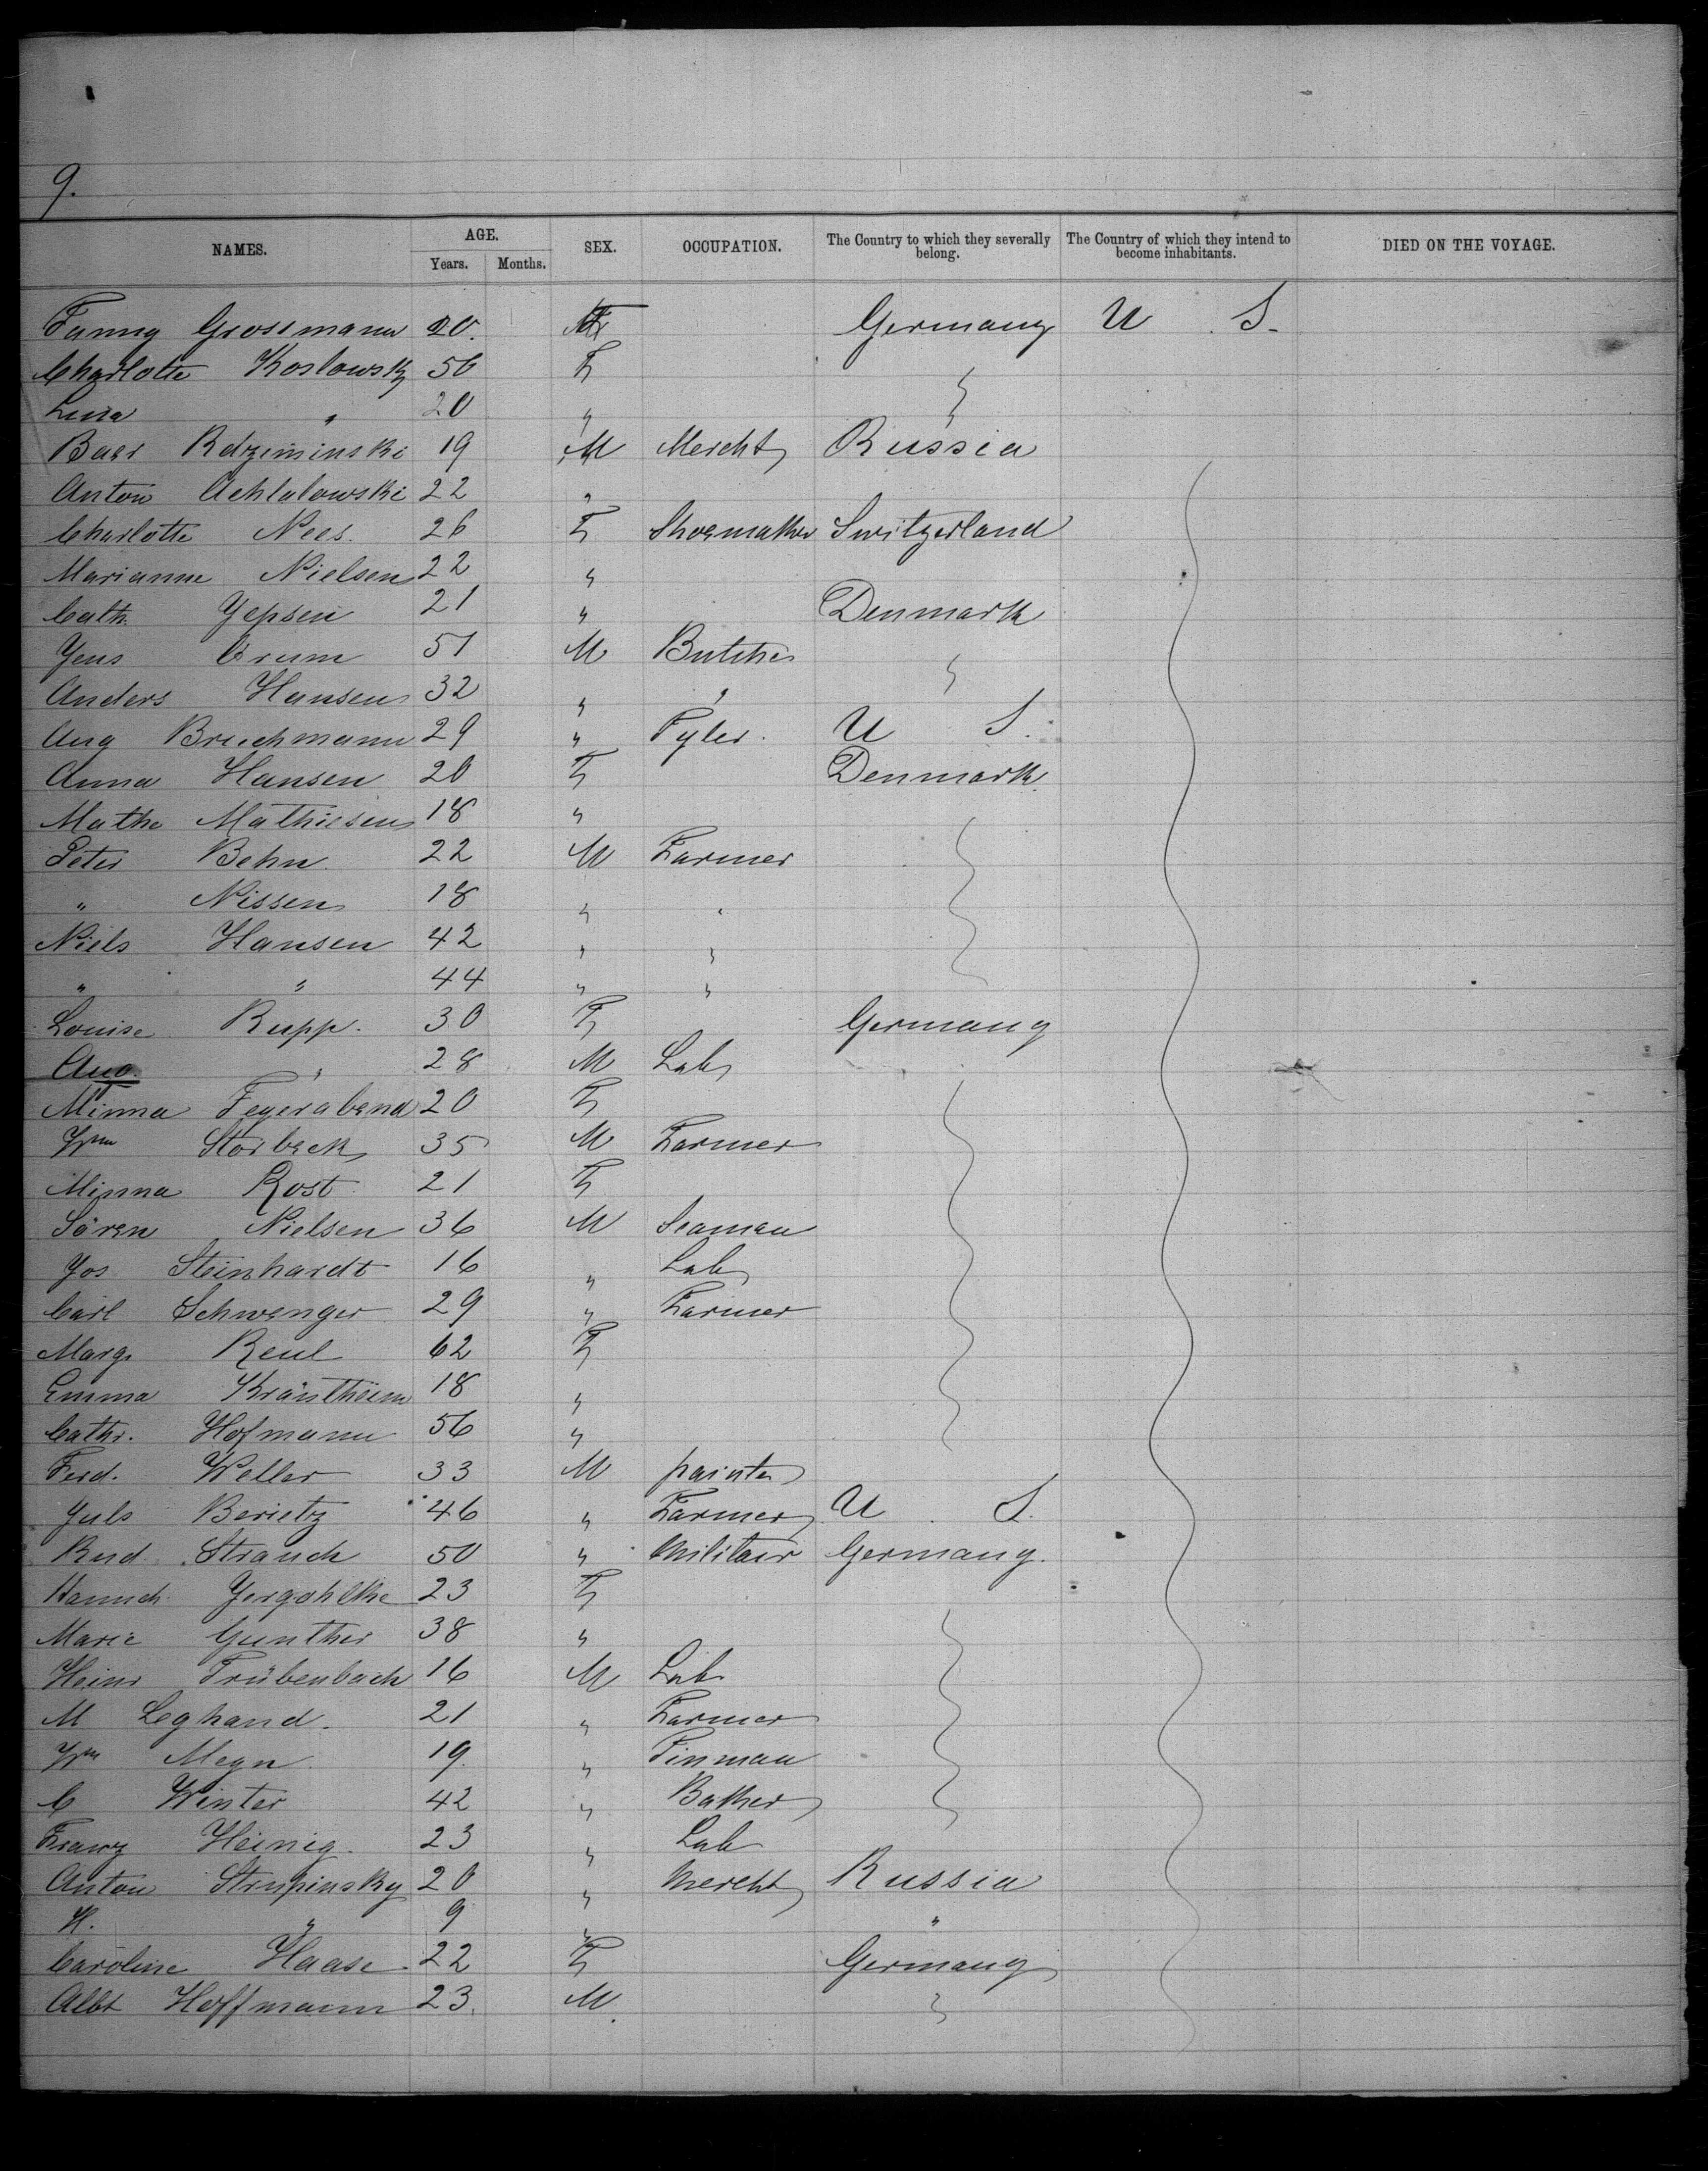 9.
NAMES. AGE. SEX. OCCUPATION. The Country to which they severally belong. The Country of which they intend to become inhabitants. DIED ON THE VOYAGE.
Years. Months.
Fanny Grossmann 20. F Germany U S.
Charlotte Koslowsky 56 F
Lina " 20 "
Baer Rdziminski 19 M Mercht Russia
Anton 22 "
Charlotte Nees. 26 F Shoemaker Switzerland
Marianne Nielsen 22 "
Cath. Yepsen 21 " Denmark
Yens 51 M Butcher "
Anders Hansen 32 " "
Aug Bruchmann 29 " Tyler. U S.
Anna Hansen 20 F Denmark
Mathe Mathiesen 18 "
Peter Behn 22 M Farmer
" Nissen 18 " "
Niels Hansen 42 " "
" " 44 " "
Louise Rupp. 30 F Germany
Aug. " 28 M Lab
Minna Feyerabend 20 F
Wm Storbeck 35 M Farmer
Minna Rost 21 F
Sören Nielsen 36 M Seaman
Jos Steinhardt 16 " Lab
Carl Schwenger 29 " Farmer
Marg. Reul 62 F
Emma 18 "
Cathr. Hofmann 56 "
Ferd. Weller 33 M painter
Juls Berietz 46 " Farmer U S.
Rud. Strauch 50 " Militair Germany.
23 F
Marie Gunther 38 "
Heinr Trübenbach 16 M Lab
M Leghand. 21 " Farmer
Wm Megn 19. " Tinman
C Winter 42 " Baker
Franz Heinig. 23 " Lab
Anton Strupinsky 20 " Mercht Russia
H. " 9 " "
Caroline Haase 22 F Germany
Albt Hoffmann 23. M. "